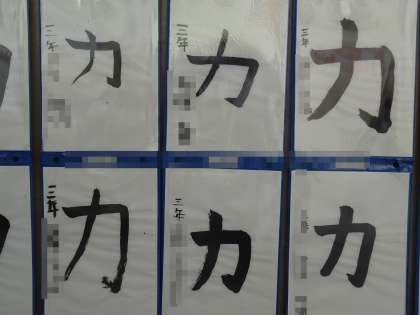 三年
力
三年
力
三年
力
三年
力
三年
力
力